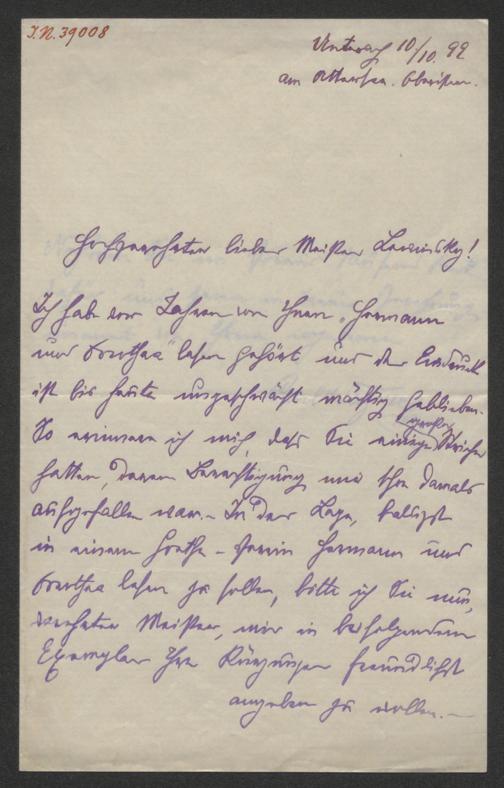 I.N. 39008
Unterach 10/10. 99
am Attersee. Oberösterr.
Hochverehrter lieber Meister Lewinsky!
Ich habe vor Jahren von Ihnen „Hermann
und Dorothea" lesen gehört und der Eindruck
ist bis heute ungeschwächt mächtig geblieben.
So erinnere ich mich, daß Sie einige große Striche
hatten, deren Berechtigung mir schon damals
aufgefallen war. – In der Lage, selbst
in einem Goethe-Verein Hermann und
Dorothea lesen zu sollen, bitte ich Sie nun,
verehrter Meister, mir in beifolgendem
Exemplar Ihre Kürzungen freundlichst
angeben zu wollen. –